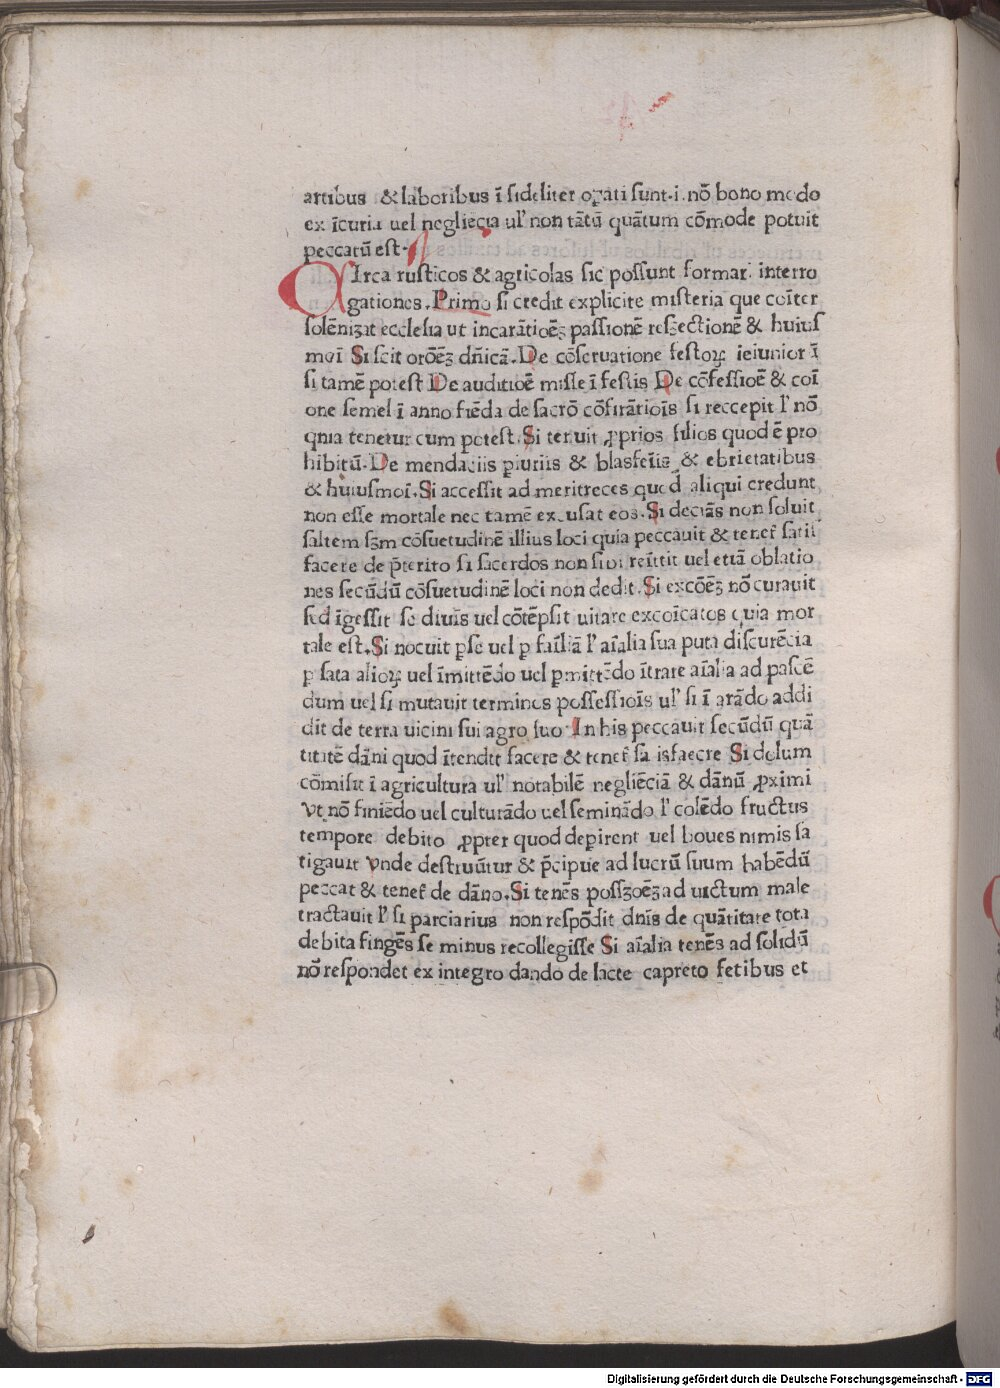 artibus & laboribus ī fideliter opati sunt.i. nō bono modo
ex īcuria uel negliēcia ul' non tātū quātum cōmode potuit
peccatū est.
CIrca rusticos & agricolas sic possunt formar. interro
gationes. Primo si credit explicite misteria que coīter
solēnizat ecclesia ut incarātioēꝫ passionē resꝫectionē & huius
moī Si scit orōēꝫ dn̄icā. De cōseruatione festoꝝ ieiunior ī
si tamē potest De auditioē misse ī festis De cōfessioē & coī
one semel ī anno fiēda de sacrō cōfirātiōis si reccepit l' nō
qnia tenetur cum potest. Si tenuit ꝓprios filios quod ē pro
hibitū. De mendaciis piuriis & blasfeīis & ebrietatibus
& huiusmoī. Si accessit ad meritreces quod aliqui credunt
non esse mortale nec tamē excusat eos. Si deciās non soluit
saltem sꝫm cōsuetudinē illius loci quia peccauit & tenet' satis
facere de p̄terito si sacerdos non sibi reīttit uel etiā oblatio
nes secūdū cōsuetudinē loci non dedit. Si excōēꝫ nō curauit
sed īgessit se diuīs uel cōtēpsit uitare excoīcatos quia mor
tale est. Si nocuit ꝑse uel ꝑ faīliā l' aīalia sua puta discurēcia
ꝑ sata alioꝝ uel īmittēdo uel ꝑmittēdo ītrare aīalia ad pascē
dum uel si mutauit terminos possessiōis ul' si ī arādo addi
dit de terra uicini sui agro suo In his peccauit secūdū quā
titatē dāni quod ītendit facere & tenet' sa isfaecre Si dolum
cōmisit ī agricultura ul' notabilē negliēciā & dānū ꝓximi
Vt nō finiēdo uel culturādo uel seminādo l' colēdo fructus
tempore debito ꝓpter quod depirent uel boues nimis fa
tigauit vnde destruūtur & p̄cipue ad lucrū suum habēdū
peccat & tenet' de dāno. Si tenēs possꝫoēꝫ ad uictum male
tractauit l' si parciarius non respōdit dn̄is de quātitate tota
debita fingēs se minus recollegisse Si aīalia tenēs ad solidū
nō respondet ex integro dando de lacte capreto fetibus et
Digitalisierung gefördert durch die Deutsche Forschungsgemeinschaft - DFG